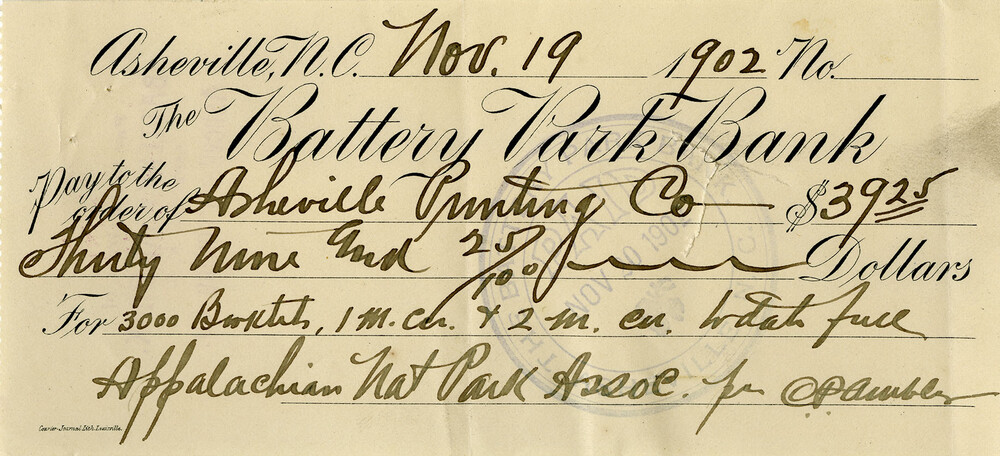 Asheville, N.C. Nov. 19 1902 No.
The Battery Park Bank
Pay to the order of Asheville Printing Co $39.25
Thirty Nine And 25/100 Dollars
For 3000 Booklets, 1 m. cir. & 2 m. en. to date full
Appalachian Nat Park Assoc. per CP Ambler
Courier-Journal Lith. Louisville.
NOV 20 1902